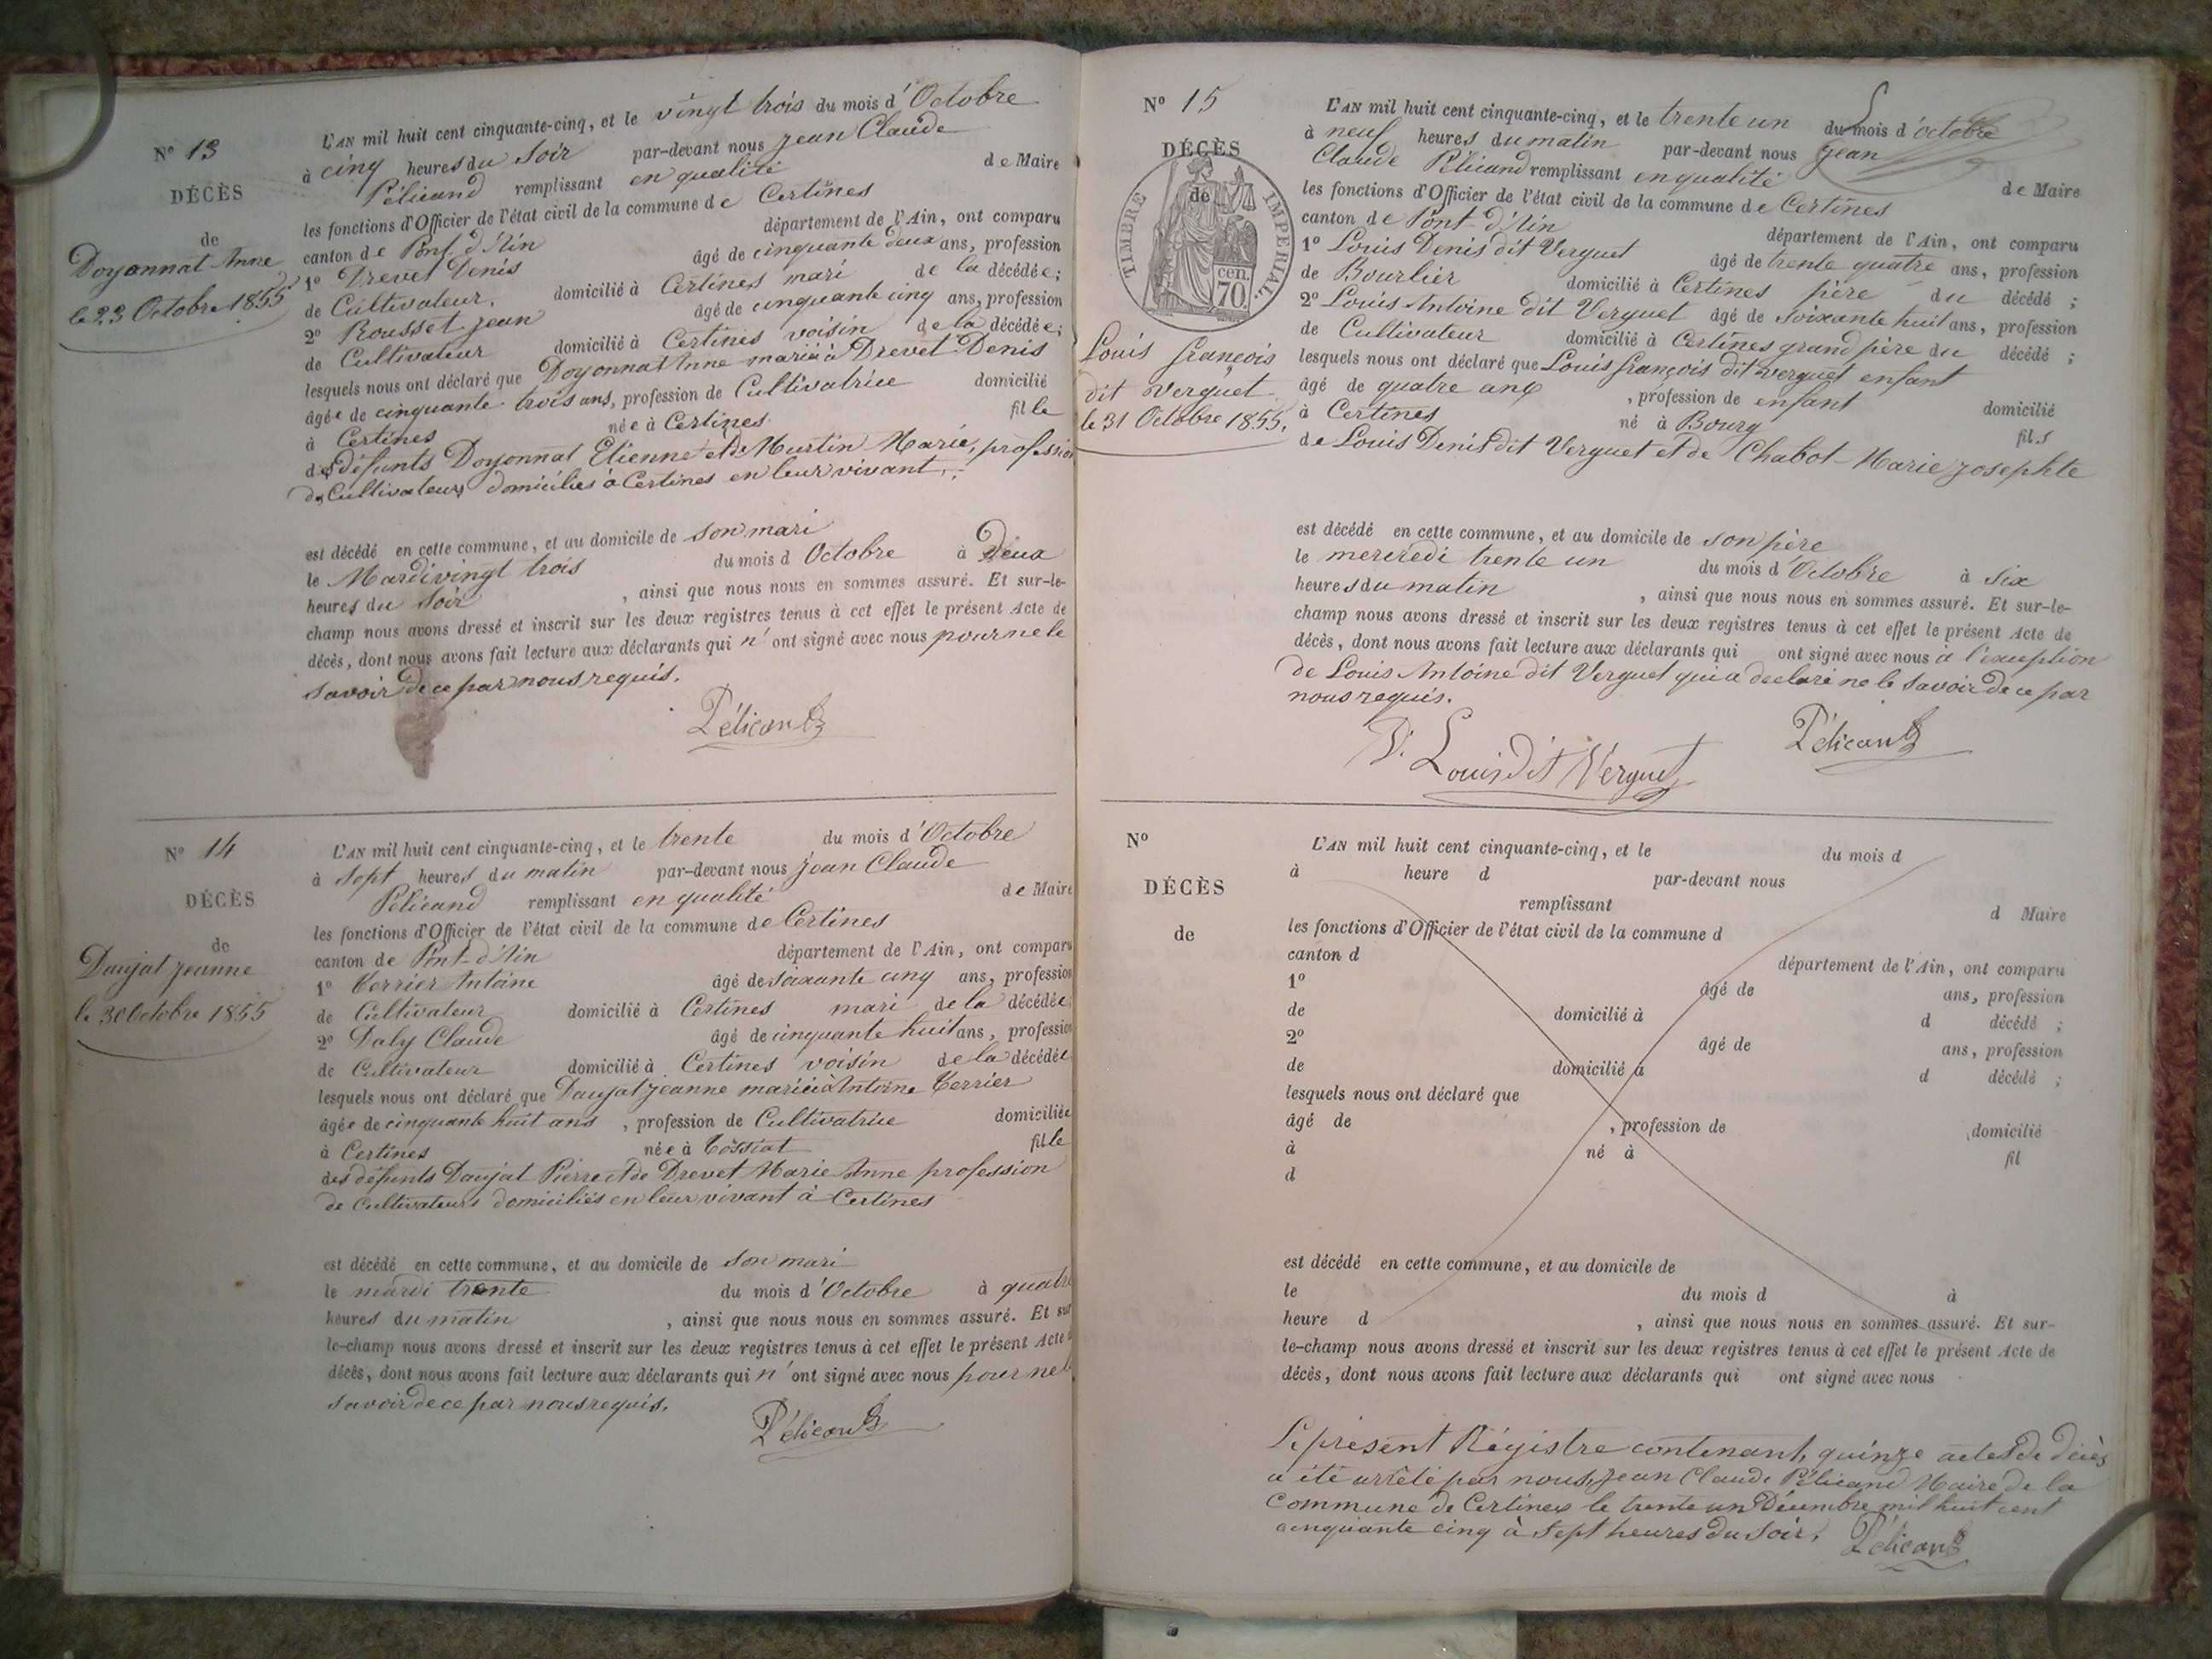 N° 13
DÉCÈS
de
Doyonnat Anne
le 23 Octobre 1855
L'AN mil huit cent cinquante-cinq, et le vingt trois du mois d'Octobre
à cinq heures du Soir par-devant nous jean Claude
Pélicand remplissant en qualité de Maire
les fonctions d'Officier de l'état civil de la commune de Certines
canton de Pont-d'Ain département de l'Ain, ont comparu
1° Drevet Denis âgé de cinquante deux ans, profession
de Cultivateur, domicilié à Certines mari de la décédée;
2° Rousset jean âgé de cinquante cinq ans, profession
de Cultivateur domicilié à Certines voisin de la décédée;
lesquels nous ont déclaré que Doyonnat Anne mariée à Drevet Denis
âgée de cinquante trois ans, profession de Cultivatrice domicilié
à Certines née à Certines fille
des défunts Doyonnat Etienne et de Murtin Marie, profession
de Cultivateurs domiciliés à Certines en leur vivant.
est décédé en cette commune, et au domicile de son mari
le Mardi vingt trois du mois d Octobre à Deux
heures du Soir, ainsi que nous nous en sommes assuré. Et sur-le-
champ nous avons dressé et inscrit sur les deux registres tenus à cet effet le présent Acte de
décès, dont nous avons fait lecture aux déclarants qui n'ont signé avec nous pour ne le
savoir de ce par nous requis.
Pélicand
N° 14
DÉCÈS
de
Daujat jeanne
le 30 Octobre 1855
L'AN mil huit cent cinquante-cinq, et le trente du mois d'Octobre
à Sept heures du matin par-devant nous jean Claude
Pélicand remplissant en qualité de Maire
les fonctions d'Officier de l'état civil de la commune de Certines
canton de Pont-d'Ain département de l'Ain, ont comparu
1° Terrier Antoine âgé de soixante cinq ans, profession
de Cultivateur domicilié à Certines mari de la décédée
2° Daly Claude âgé de cinquante huit ans, profession
de Cultivateur domicilié à Certines voisin de la décédée
lesquels nous ont déclaré que Daujat jeanne mariée à Antoine Terrier
âgée de cinquante huit ans, profession de Cultivatrice domiciliée
à Certines née à Tossiat fille
des défunts Daujat Pierre et de Drevet Marie Anne profession
de Cultivateurs domiciliés en leur vivant à Certines
est décédé en cette commune, et au domicile de son mari
le mardi trente du mois d'Octobre à quatre
heures du matin, ainsi que nous nous en sommes assuré. Et sur
le-champ nous avons dressé et inscrit sur les deux registres tenus à cet effet le présent Acte
décès, dont nous avons fait lecture aux déclarants qui n'ont signé avec nous pour ne le
savoir de ce par nous requis.
Pélicand
N° 15
DÉCÈS
de
TIMBRE IMPERIAL.
70 cen.
Louis françois
dit Verguet
le 31 Octobre 1855.
L'AN mil huit cent cinquante-cinq, et le trente un du mois d'octobre
à neuf heures du matin par-devant nous jean
Claude Pélicand remplissant en qualité de Maire
les fonctions d'Officier de l'état civil de la commune de Certines
canton de Pont-d'Ain département de l'Ain, ont comparu
1° Louis Denis dit Verguet âgé de trente quatre ans, profession
de Bourlier domicilié à Certines père du décédé;
2° Louis Antoine dit Verguet âgé de soixante huit ans, profession
de Cultivateur domicilié à Certines grand père du décédé;
lesquels nous ont déclaré que Louis françois dit verguet enfant
âgé de quatre ans, profession de enfant domicilié
à Certines né à Bourg fils
de Louis Denis dit Verguet et de Chabot Marie josephte
est décédé en cette commune, et au domicile de son père
le mercredi trente un du mois d'Octobre à Six
heures du matin, ainsi que nous nous en sommes assuré. Et sur-le-
champ nous avons dressé et inscrit sur les deux registres tenus à cet effet le présent Acte de
décès, dont nous avons fait lecture aux déclarants qui ont signé avec nous à l'exception
de Louis Antoine dit Verguet qui a declaré ne le savoir de ce par
nous requis.
D. Louis dit Verguet Pélicand
N°
DÉCÈS
de
L'AN mil huit cent cinquante-cinq, et le du mois d
à heure d par-devant nous
remplissant d Maire
les fonctions d'Officier de l'état civil de la commune d
canton d département de l'Ain, ont comparu
1° âgé de ans, profession
de domicilié à d décédé;
2° âgé de ans, profession
de domicilié à d décédé;
lesquels nous ont déclaré que
âgé de, profession de domicilié
à né à fil
d
est décédé en cette commune, et au domicile de
le du mois d à
heure d, ainsi que nous nous en sommes assuré. Et sur-
le-champ nous avons dressé et inscrit sur les deux registres tenus à cet effet le présent Acte de
décès, dont nous avons fait lecture aux déclarants qui ont signé avec nous
Le présent Régistre contenant, quinze actes de décès
a été arrêté par nous, jean Claude Pélicand Maire de la
Commune de Certines le trente un Décembre mil huit cent
cinquante cinq à Sept heures du Soir. Pélicand